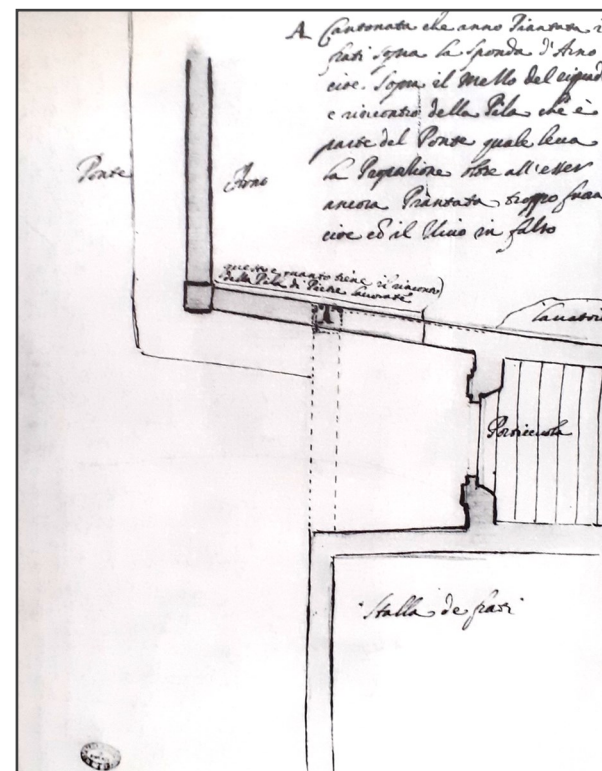 A Cantonata che anno Piantata i
frati sopra la sponda d'Arno
cioe sopra il Mezzo del
e rincontro della Pila che è
parte del Ponte quale leva
la oltre all'esser
ancora Piantata troppo
cioe ed il Vivo in falso
Ponte
Arno
questo e quanto tiene il rincontro
della Pila di Pietre lavorate
A
Lavatoi
Porticciola
Stalla de frati